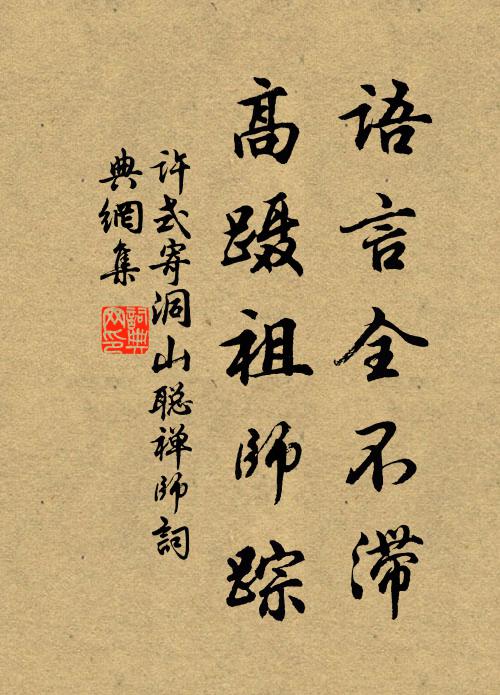 语言全不滞
高蹑祖师踪
许式寄洞山聪禅师詞
典網集
詞典网印